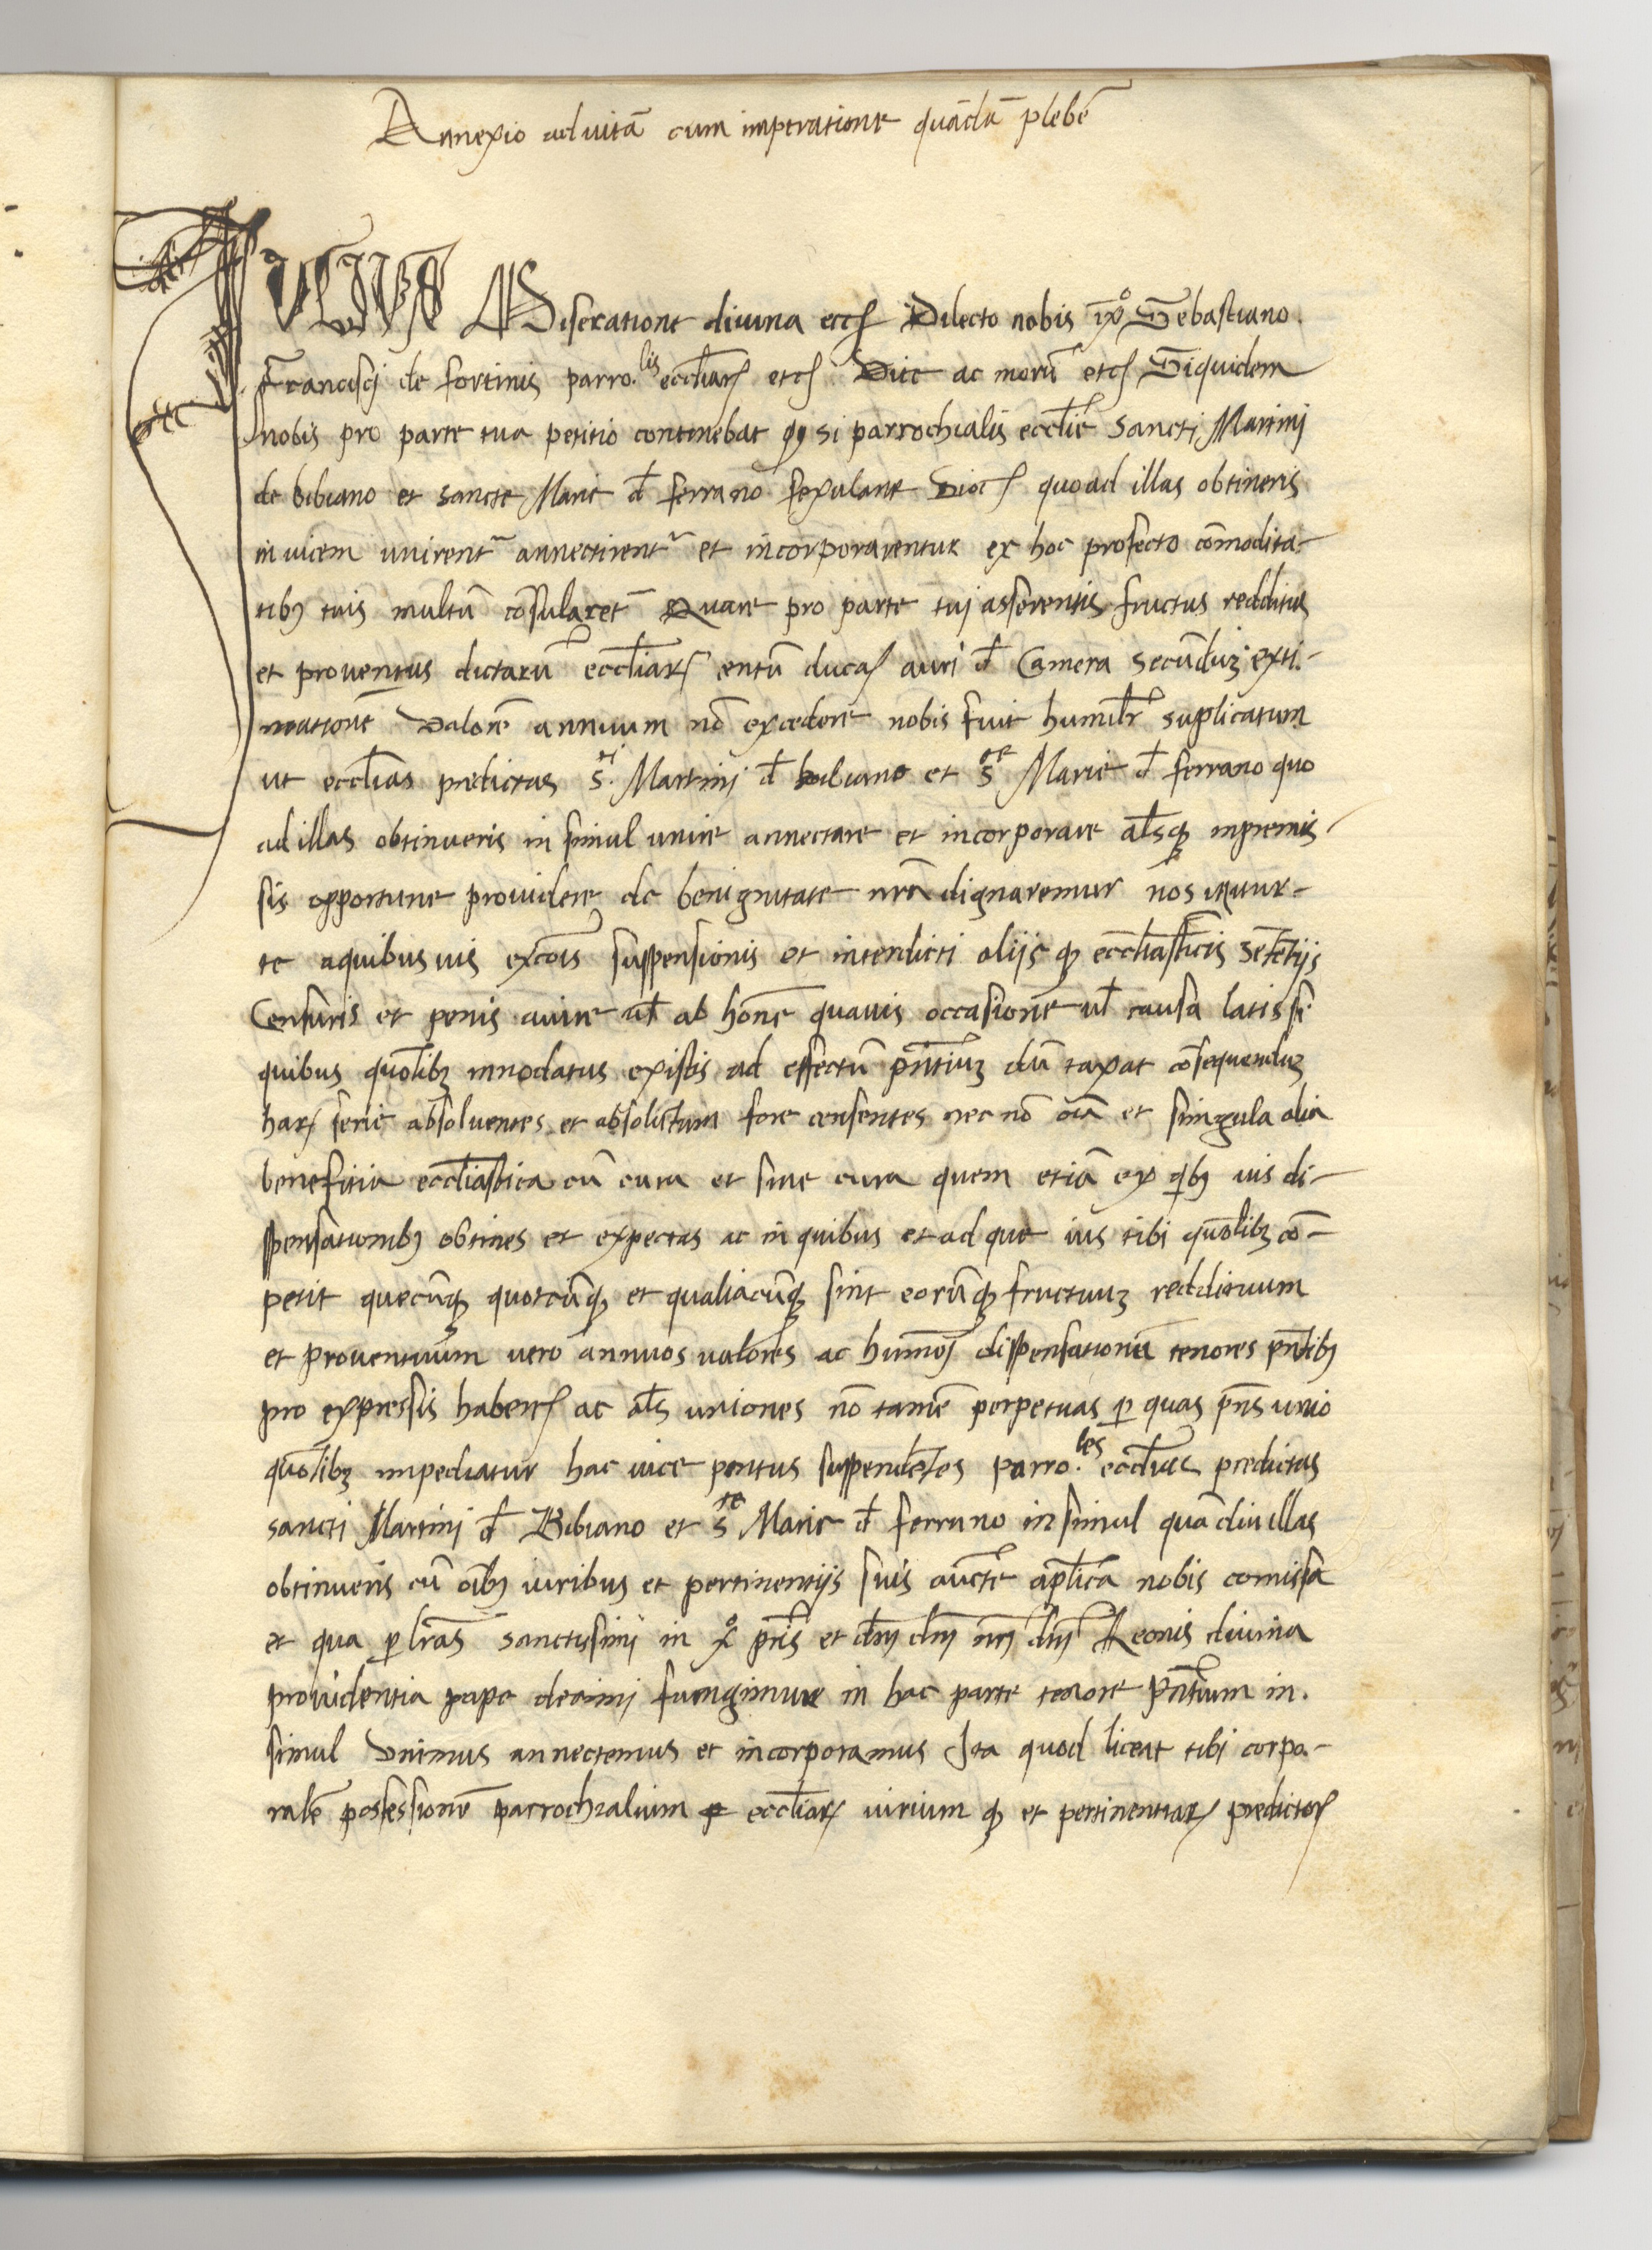 Annexio ad uitā cum imperatione quādā plebē
IVLIVS Miseratione diuina etcʃ Dilecto nobis ī xp̄o Sebastiano.
Francisci de fortinis parro.lis eccl̄iarʒ etcʃ Vite ac morū etcʃ Siquidem
nobis pro parte tua petitio continebat qꝫ si parrochialis eccl̄ie Sancti Martinj
de bibiano et sancte Marie d̄ ferrano fexulane Diocʃ quoad illas obtineris
inuicem unirent᷑ annectirent᷑ et incorporarentur ex hoc profecto cōmodita-
tibꝫ tuis multū cōsularet᷑ Quare pro parte tuj asserentis fructus redditus
et prouentus dictarū eccl̄iarʒ centū ducaʃ auri d̄ Camera secūduʒ exti.-
mationē Valorē annuum nō excedere nobis fuit humil̄r suplicatum
ut eccl̄ias predictas S.ti Martinj d̄ bibiano et Ste Marie d̄ ferrano quo
ad illas obtinueris in simul unire annectare et incorporare al̄sqꝫ inpremis-
sis opportune prouidere de benignitate nr̄a dignaremur nos igitur-
te aquibusuis excōis suspensionis et interdicti aliisqꝫ eccl̄iasticis sētētijs
Censuris et penis aiure ul̄ ab hōne quauis occasione ul̄ causa latis si
quibus quōlibꝫ innodatus existis ad effectū pn̄tiuʒ dū taxat cōsequenduʒ
harʒ serie absoluentes et absolutum fore censentes nec nō oīa et singula alia
benefitia eccl̄iastica cū cura et sine cura quem etiā ex qbꝫ uis di-
spensationibꝫ obtines et expectas ac in quibus et ad que ius tibi quōlibꝫ cō-
petit quecūqꝫ quotcūqꝫ et qualiacūqꝫ sint eorūqꝫ fructuuʒ reddituum
et prouentuum uero annuos ualores ac humōj dispensationū tenores pn̄tibꝫ
pro expressis habenʃ ac al̄s uniones nō tamē perpetuas ꝑ quas pn̄s unio
quōlibꝫ impediatur hac uice pentus suspendētes parro.les eccl̄ias predictas
sancti Martinj d̄ Bibiano et Ste Marie d̄ ferrano in simul quādiu illas
obtinueris cū oībꝫ iuribus et pertinentijs suis auctē apl̄ica nobis comissa
et qua ꝑ lr̄as sanctissimj in xp̄o pr̄is et dn̄j dn̄j nr̄j dn̄j Leonis diuina
prouidentia pape decimj fungimur in hac parte tenore pn̄tium in.
simul Vnimus annectemus et incorporamus Ita quod liceat tibi corpo.-
ralē possessionē parrochialium eccl̄iarʒ iurium qꝫ et pertinentiarʒ predictorʒ